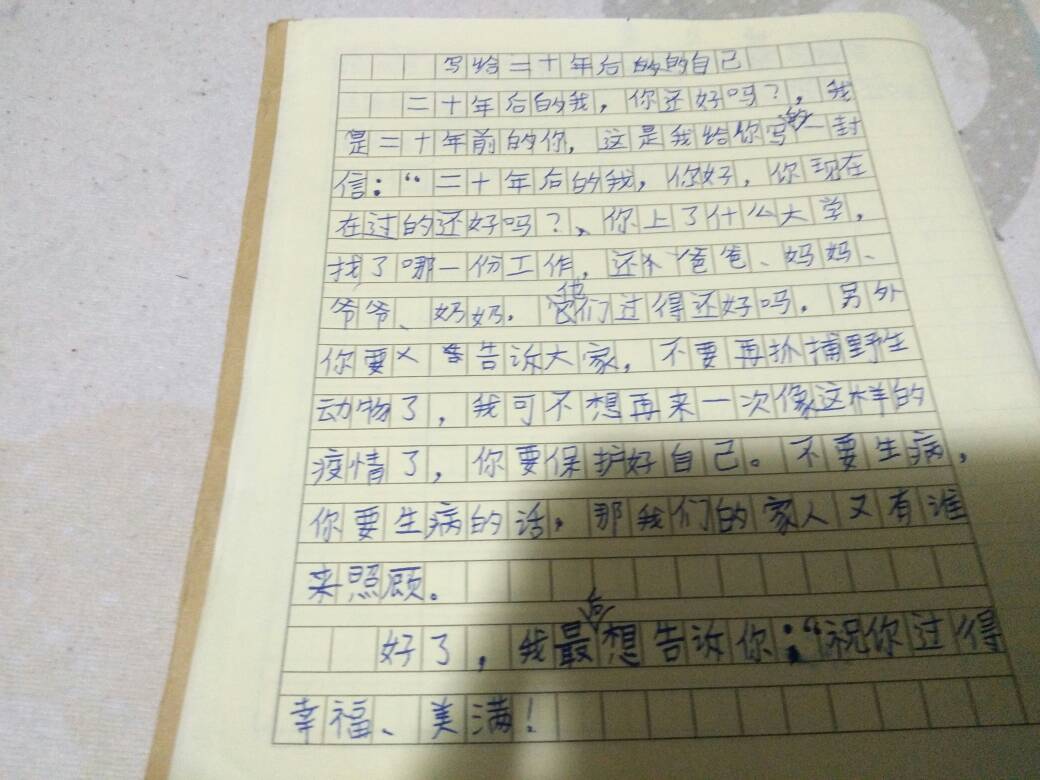 写给二十年后的的自己
二十年后的我，你还好吗？，我
是二十年前的你，这是我给你写的一封
信：“二十年后的我，你好，你现在
在过的还好吗？、你上了什么大学，
找了哪一份工作，还爸爸、妈妈、
爷爷、奶奶．他们过得还好吗．另外
你要告诉大家，不要再抓捕野生
动物了，我可不想再来一次像这样的
疫情了，你要保护好自己。不要生病，
你要生病的话，那我们的家人又有谁
来照顾。
好了，我最后想告诉你：“祝你过得
幸福、美满！